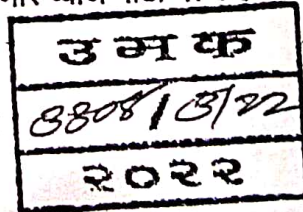 उ म क
8808/8/22
२०२२